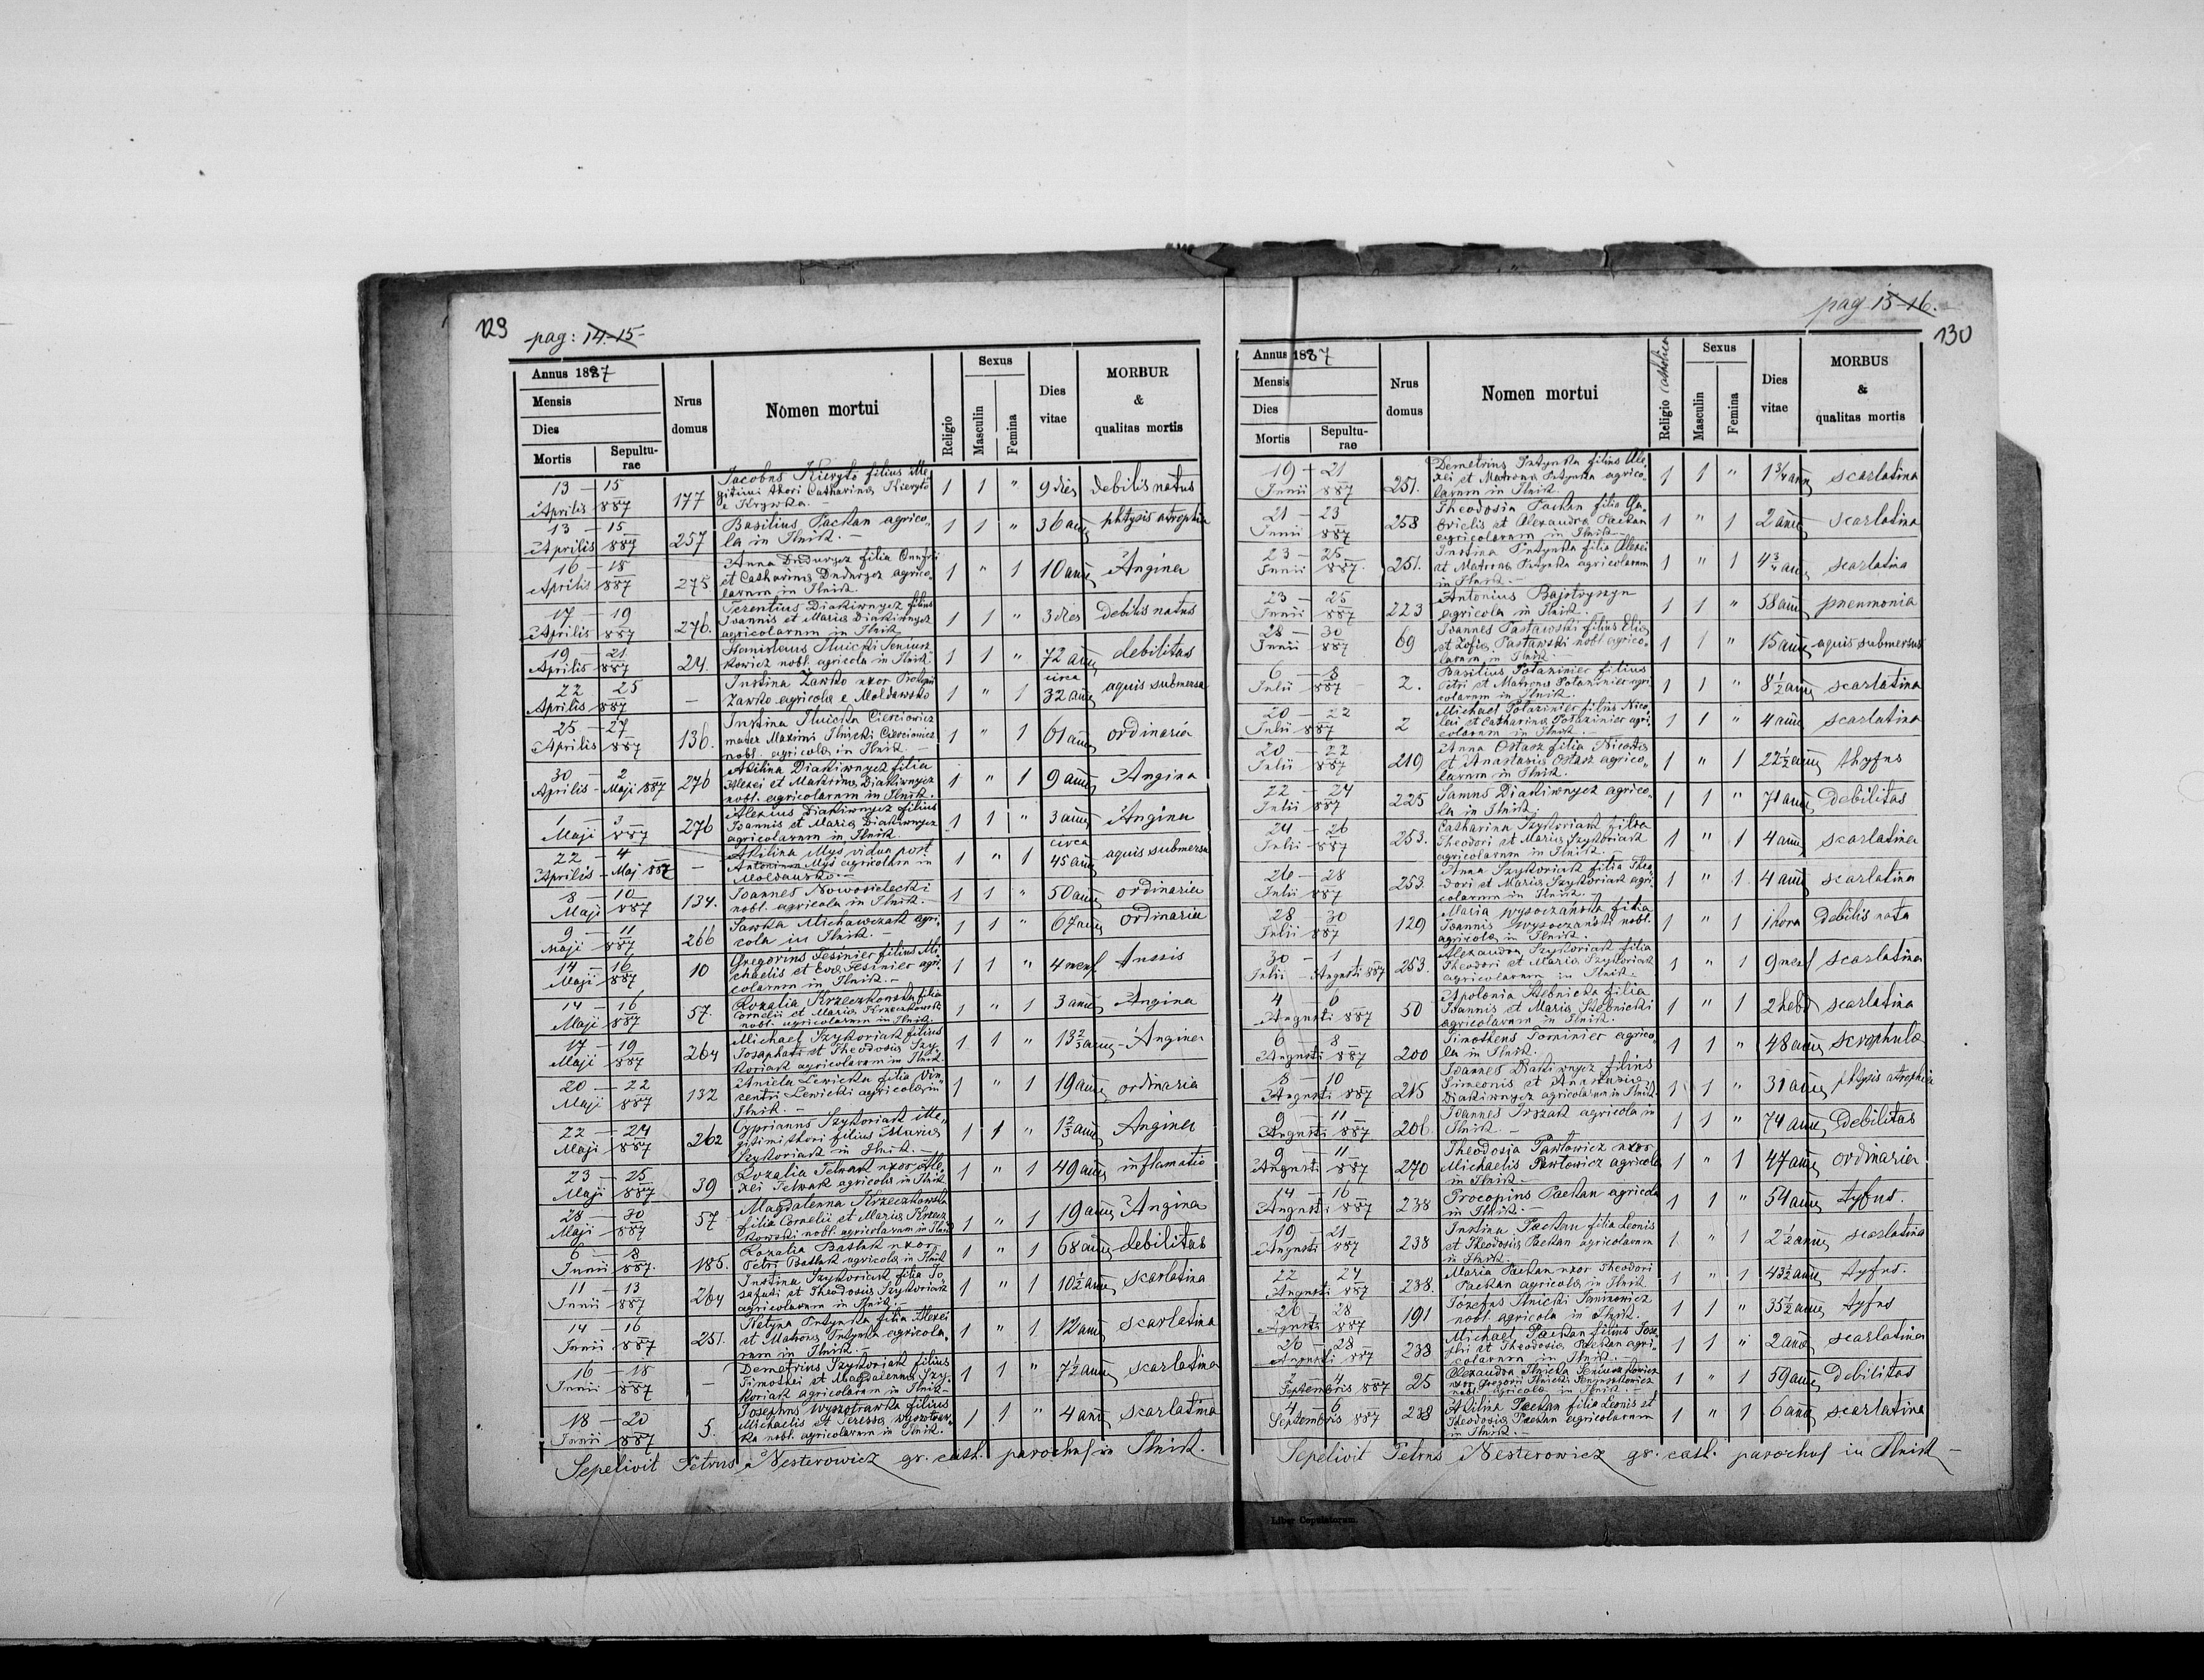 129 pag: 14-15-
Annus 1887
Mensis
Dies
Mortis Sepultu-
rae
Nrus
domus
Nomen mortui
Religio
Sexus
Masculin
Femina
Dies
vitae
MORBUR
&
qualitas mortis
13 — 15
Aprilis 887 177 Jacobus Kieryło filius ille
gitimi thori Catharinæ Kieryło
e Krywka. 1 1 " 9 dies debilis natus
13 — 15
Aprilis 887 257 Basilius Packan agrico-
la in Ilnik. — 1 1 " 36 annu phtysis atrophia
16 — 18
Aprilis 887 275 Anna Dudurycz filia Onufrii
et Catharinæ Dudurycz agrico-
larum in Ilnik 1 " 1 10 annu Angina
17 — 19
Aprilis 887 276. Terentius Diakiwnycz filius
Ioannis et Mariæ Diakiwnycz
agricolarum in Ilnik 1 1 " 3 dies debilis natus
19 — 21
Aprilis 887 24. Stanislaus Ilnicki Seniusz-
kowicz nobl. agricola in Ilnik 1 1 " 72 annu debilitas
22 25
Aprilis 887 — Justina Zawko uxor
Zawko agricolæ e Moldawsko 1 " 1 circa
32 annu aquis submersa
25 — 27
Aprilis 887 136. Justina Ilnicka Cierciowicz
mater Maximi Ilnicki Cierciowicz
nobl. agricolæ in Ilnik — 1 " 1 61 annu ordinaria
30 — 2
Aprilis - Maji 887 276 Akilina Diakiwnycz filia
Alexei et Maktrinæ Diakiwnycz
nobl. agricolarum in Ilnik. 1 " 1 9 annu Angina
1 — 3
Maji 887 276 Alexius Diakiwnycz filius
Ioannis et Mariæ Diakiwnycz
agricolarum in Ilnik 1 1 " 3 annu Angina
22 — 4
Aprilis - Maj 887 — Akilina Myś vidua post
Antonium Myś agricolam in
Moldawsko. — 1 " 1 circa
45 annu aquis submersa
8 — 10
Maji 887 134. Ioannes Nowosielecki
nobl. agricola in Ilnik. — 1 1 " 50 annu ordinaria
9 — 11
Maji 887 266 Sawka Michawczak agri-
cola in Ilnik. — 1 1 " 67 annu ordinaria
14 — 16
Maji 887 10 Gregorius Fesinier filius Mi-
chaelis et Evæ Fesinier agri-
colarum in Ilnik. — 1 1 " 4 mens tussis
14 — 16
Maji 887 57. Rozalia Krzeczkowska filia
Cornelii et Mariæ Krzeczkowski
nobl. agricolarum in Ilnik. 1 " 1 3 annu Angina
17 — 19
Maji 887 264 Michael Szykoriak filius
Josaphati et Theodosiæ Szy-
koriak agricolarum in Ilnik. 1 1 " 13 2/3 annu - Angina
20 — 22
Maji 887 132 Aniela Lewicka filia Vin-
centii Lewicki agricolæ in
Ilnik. — 1 " 1 19 annu ordinaria
22 — 24
Maji 887 262 Cyprianus Szykoriak ille-
gitimi thori filius Mariæ
Szykoriak in Ilnik. — 1 1 " 1 2/3 annu Angina
23 — 25
Maji 887 39 Rozalia Telwak uxor Ale-
xei Telwak agricolæ in Ilnik 1 " 1 49 annu inflamatio
28 — 30
Maji 887 57 Magdalenna Krzeczkowska
filia Cornelii et Mariæ Krzecz
kowski nobl. agricolarum in Ilnik 1 " 1 19 annu Angina
6 — 8
Junii 887. 185. Rozalia Basluk uxor
Petri Basluk agricolæ in Ilnik 1 " 1 68 annu debilitas
11 — 13
Junii 887 264 Justina Szykoriak filia Jo-
safati et Theodosiæ Szykoriak
agricolarum in Ilnik. — 1 " 1 10 1/2 annu scarlatina
14 — 16
Junii 887 251. Tatyna Putynka filia Alexei
et Matronæ Putynka agricola-
rum in Ilnik. — 1 " 1 12 annu scarlatina
16 — 18
Junii 887 — Demetrius Szykoriak filius
Timothei et Magdalennæ Szy-
koriak agricolarum in Ilnik — 1 1 " 7 1/2 annu scarlatina
18 — 20
Junii 887 5. Josephus Wyszotrawka filius
Michaelis et Teressæ Wyszotraw-
ka nobl. agricolarum in Ilnik. 1 1 " 4 annu scarlatina
Sepelivit Petrus Nesterowicz gr. cath. parochus in Ilnik.
pag 15-16.
130
Annus 1887
Mensis
Dies
Mortis Sepultu-
rae
Nrus
domus
Nomen mortui
Religio catholica
Sexus
Masculin
Femina
Dies
vitae
MORBUS
&
qualitas mortis
19 — 21
Junii 887 251. Demetrius Putynka filius Ale-
xei et Matronæ Putynka agrico-
larum in Ilnik. 1 1 " 1 3/4 annu scarlatina
21 — 23
Junii 887 258 Theodosia Packan filia Ga-
brielis et Alexandræ Packan
agricolarum in Ilnik — 1 " 1 2 annu scarlatina
23 — 25
Junii 887. 251. Justina Putynka filia Alexei
et Matronæ Putynka agricolarum
in Ilnik. — 1 " 1 4 3/4 annu scarlatina
23 — 25
Junii 887 223 Antonius Bajstryzyn
agricola in Ilnik. — 1 1 " 58 annu pneumonia
28 — 30
Junii 887 69 Ioannes Pastawski filius Eliæ
et Zofiæ Pastawski nobl. agrico-
larum in Ilnik. — 1 1 " 15 annu aquis submersus
6 — 8
Julii 887 2. Basilius Potaznier filius
Petri et Matronæ Potaznier agri-
colarum in Ilnik 1 1 " 8 1/2 annu scarlatina
20 — 22
Julii 887 2 Michael Potaznier filius Nico-
lai et Catharinæ Potaznier agri-
colarum in Ilnik. — 1 1 " 4 annu scarlatina
20 — 22
Julii 887 219 Anna Ostasz filia Nicolai
et Anastasiæ Ostasz agrico-
larum in Ilnik. 1 " 1 22 1/2 annu thyfus
22 — 24
Julii 887 225 Samus Diakiwnycz agrico-
la in Ilnik. 1 1 " 71 annu Debilitas
24 — 26
Julii 887 253. Catharina Szykoriak filia
Theodori et Mariæ Szykoriak
agricolarum in Ilnik. 1 " 1 4 annu scarlatina
26 — 28
Julii 887 253. Anna Szykoriak filia Theo-
dori et Mariæ Szykoriak agri-
colarum in Ilnik. — 1 " 1. 4 annu scarlatina
28 30
Julii 887 129 Maria Wysoczańska filia
Ioannis Wysoczański nobl.
agricolæ in Ilnik. 1 " 1 1 hora Debilis nata
30 — 1
Julii - Augusti 887 253. Alexandra Szykoriak filia
Theodori et Mariæ Szykoriak
agricolarum in Ilnik. 1 " 1 9 mens scarlatina
4 — 6
Augusti 887 50 Apolonia Stebnicka filia
Ioannis et Mariæ Stebnicki
agricolarum in Ilnik. 1 " 1 2 hebd scarlatina
6 8
Augusti 887 200 Timotheus Tominier agrico-
la in Ilnik. 1 1 " 48 annu scrophulæ
8 — 10
Augusti 887 215 Ioannes Diakiwnycz filius
Simeonis et Anastasiæ
Diakiwnycz agricolarum in Ilnik. 1 1 " 31 annu phtysis atrophia
9 — 11
Augusti 887 206. Ioannes agricola in
Ilnik. — 1 1 " 74 annu Debilitas
9 — 11
Augusti 887 270 Theodosia Pawłowicz uxor
Michaelis Pawłowicz agricolæ
in Ilnik — 1 " 1 47 annu ordinaria
14 — 16
Augusti 887 238 Procopius Packan agricola
in Ilnik. — 1 1 " 54 annu tyfus.
19 21
Augusti 887 238 Justina Packan filia Leonis
et Theodosiæ Packan agricolarum
in Ilnik. 1. " 1 2 1/2 annu scarlatina
22 24
Augusti 887 238. Maria Packan uxor Theodori
Packan agricolæ in Ilnik 1 " 1 43 1/2 annu tyfus.
26 — 28
Agusti 887 191 Józefus Ilnicki Janinowicz
nobl. agricola in Ilnik. 1 1 " 35 1/2 annu tyfus
26 — 28
Augusti 887 238 Michael Packan filius Jose-
phi et Theodosiæ Packan agri-
colarum in Ilnik. 1 1 " 2 annu scarlatina
2 4
Septembris 887 25 Alexandra Ilnicka Seniuszkowicz
uxor Gregorii Ilnicki Seniuszkowicz
nobl. agricolæ in Ilnik. — 1 " 1 59 annu Debilitas
4 6
Septembris 887 238 Akilina Packan filia Leonis et
Theodosiæ Packan agricolarum
in Ilnik. — 1 " 1 6 annu scarlatina
Sepelivit Petrus Nesterowicz gr. cath. parochus in Ilnik —
Liber Copulatorum.